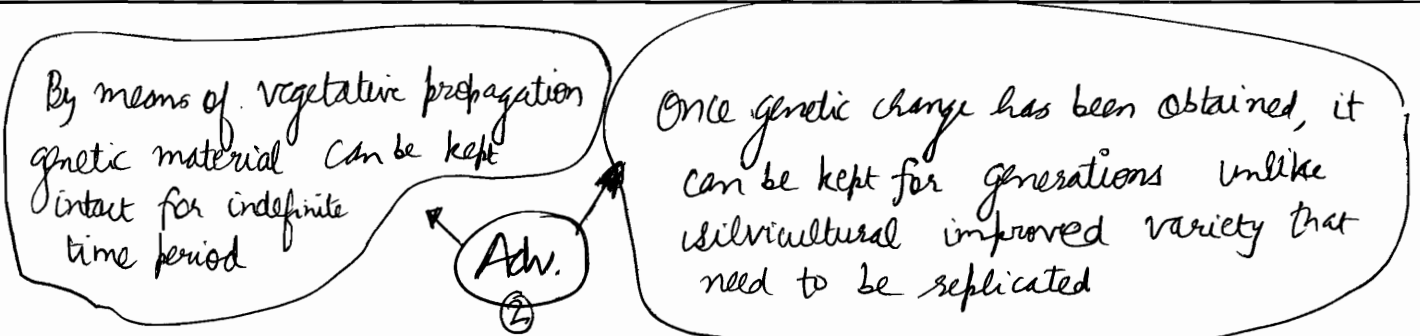 By means of vegetative propagation
genetic material can be kept
intact for indefinite
time period
Adv.
2
Once genetic change has been obtained, it
can be kept for generations unlike
silvicultural improved variety that
need to be replicated